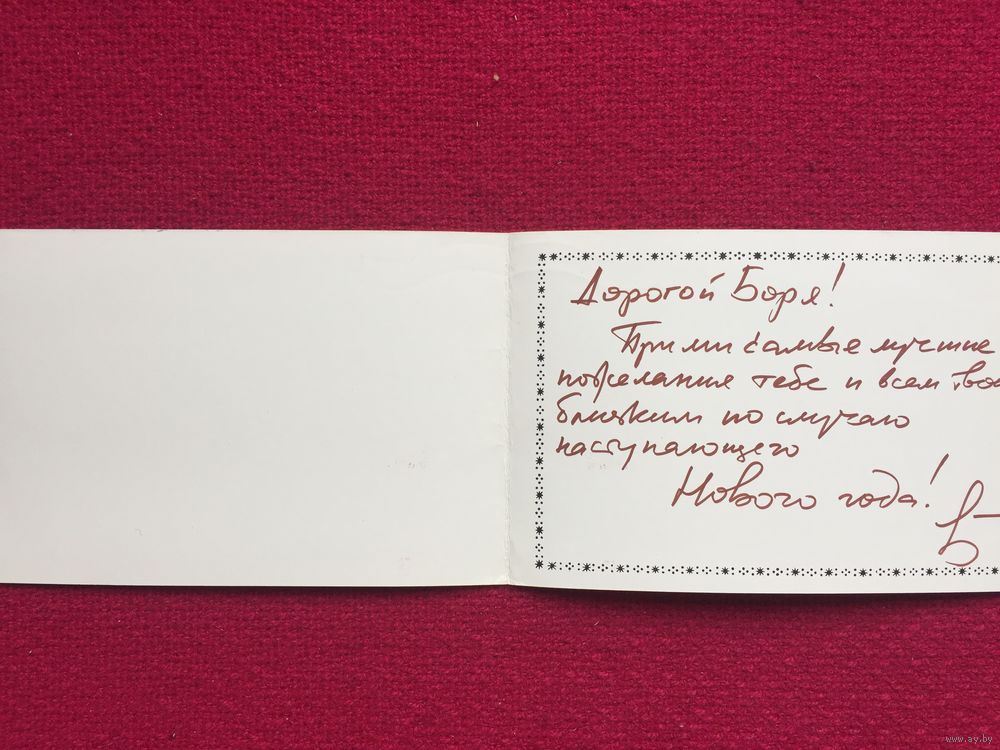 Дорогой Боря!
Прими самые лучшие
пожелания тебе и всем
близким по случаю
наступающего
Нового года!
www.ay.by